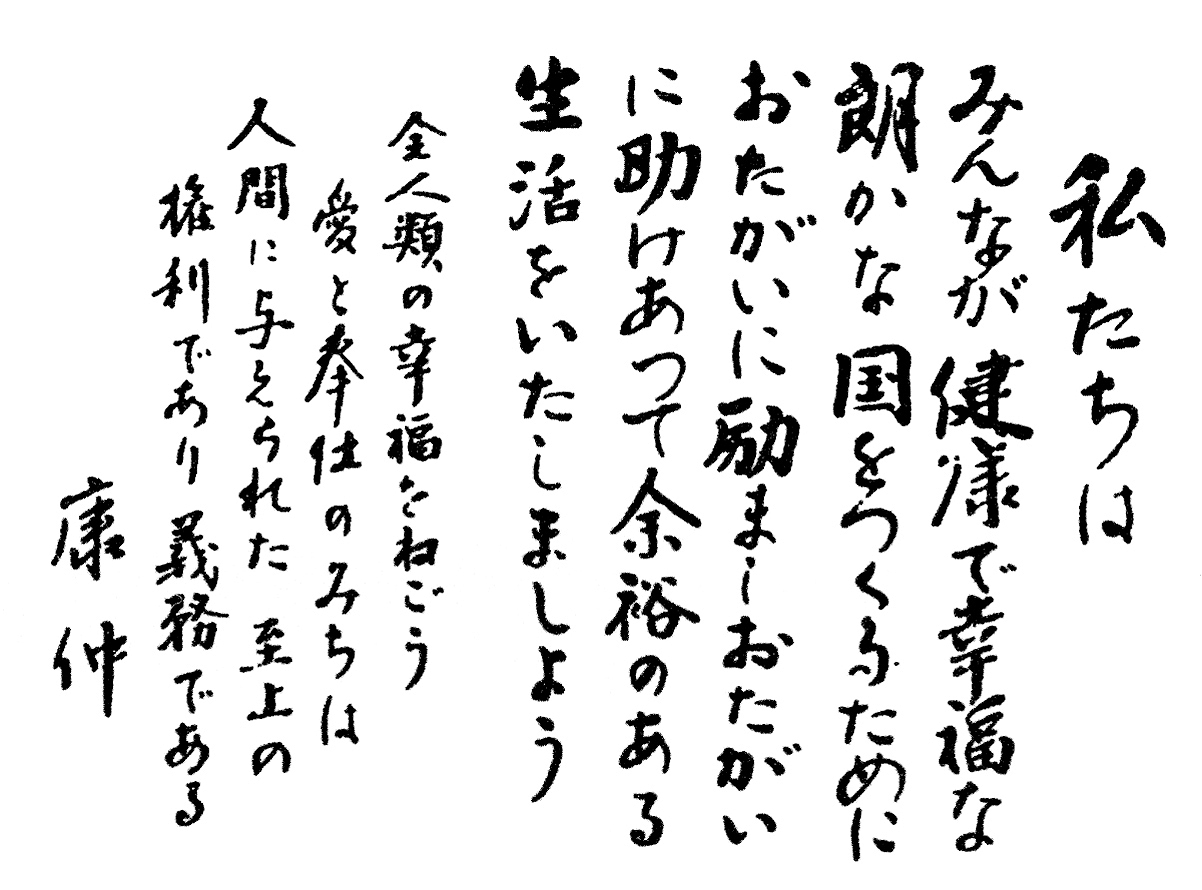 私たちは
みんなが健康で幸福な
朗かな国をつくるために
おたがいに励ましおたがい
に助けあつて余裕のある
生活をいたしましよう
全人類の幸福をねごう
愛と奉仕のみちは
人間に与えられた至上の
権利であり義務である
康仲